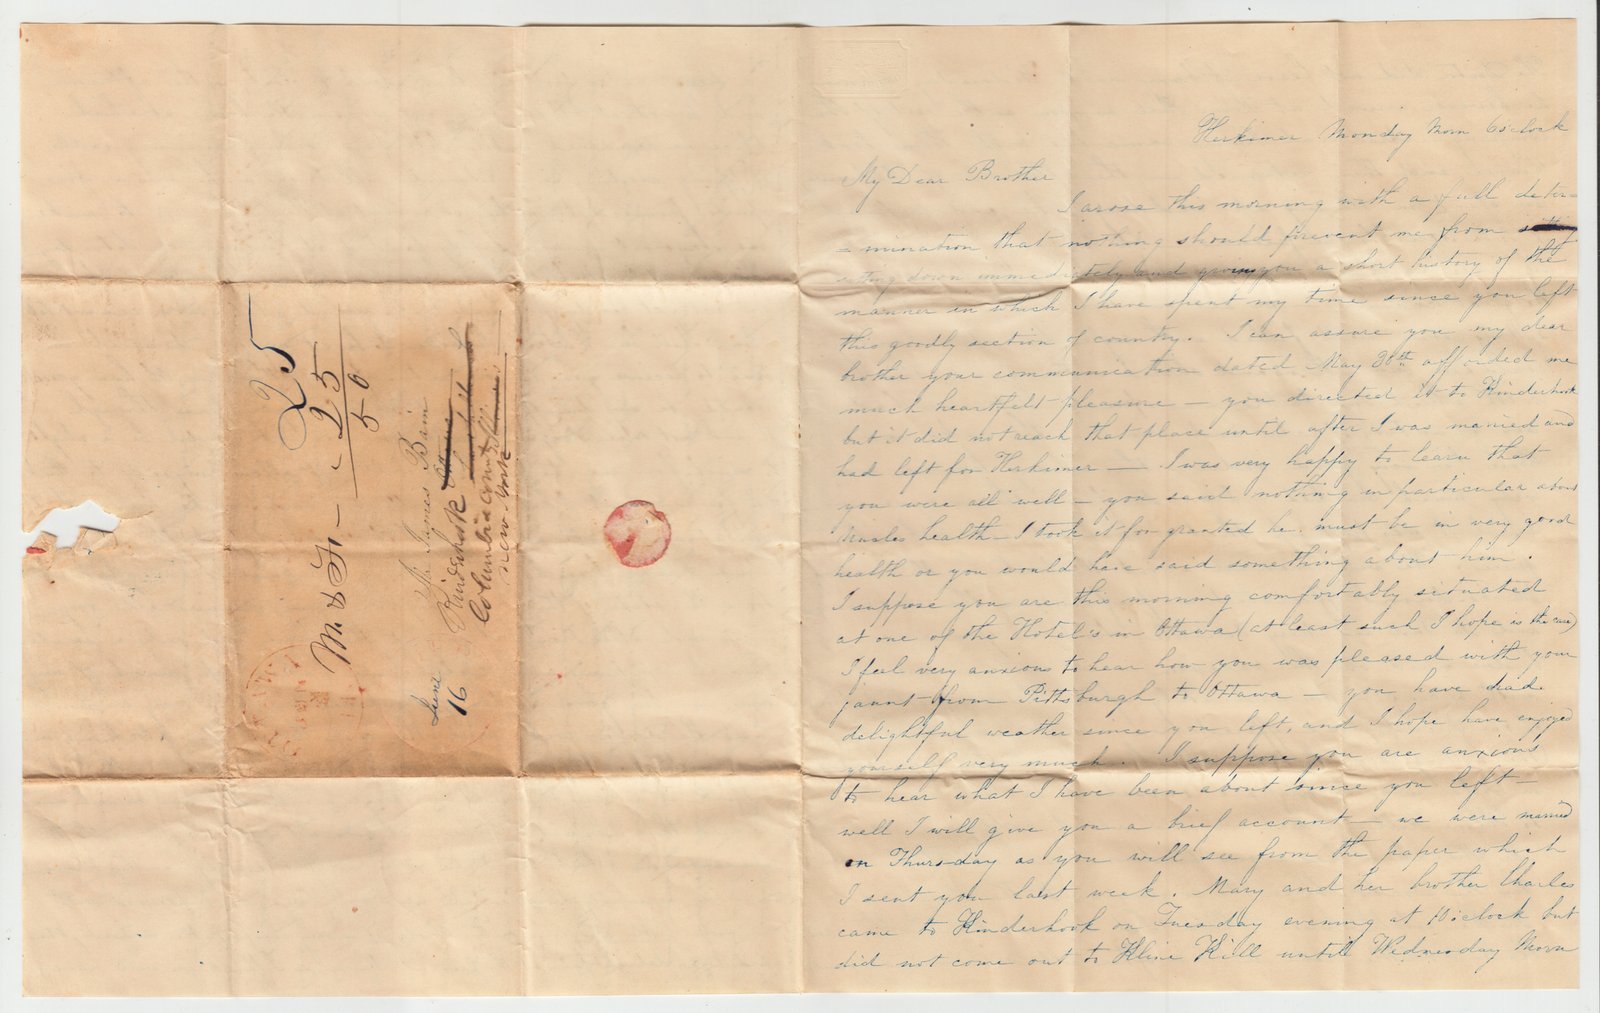 25
25
50
M & Fr
Mr James Bain
Kinderhook
Columbia
New York
June
16
Herkimer Monday Morn 6 o'clock
My Dear Brother
I arose this morning with a full deter=
=mination that nothing should prevent me from
siting down immediately and giving you a short history of the
manner in which I have spent my time since you left
this goodly section of country. I can assure you my dear
brother your communication dated May 30th afforded me
much heartfelt pleasure — you directed it to Kinderhook
but it did not reach that place until after I was married and
had left for Herkimer — I was very happy to learn that
you were all well — you said nothing in particular about
Uncles health — I took it for granted he must be in very good
health or you would have said something about him.
I suppose you are this morning comfortably situated
at one of the Hotel's in Ottawa (at least such I hope is the case)
I feel very anxious to hear how you was pleased with your
jaunt from Pittsburgh to Ottawa — you have had
delightful weather since you left, and I hope have enjoyed
yourself very much. I suppose you are anxious
to hear what I have been about since you left —
well I will give you a brief account — we were married
on Thursday as you will see from the paper which
I sent you last week. Mary and her brother Charles
came to Kinderhook on Tuesday evening at 10 o'clock but
did not come out to Kline Kill until Wednesday Morn